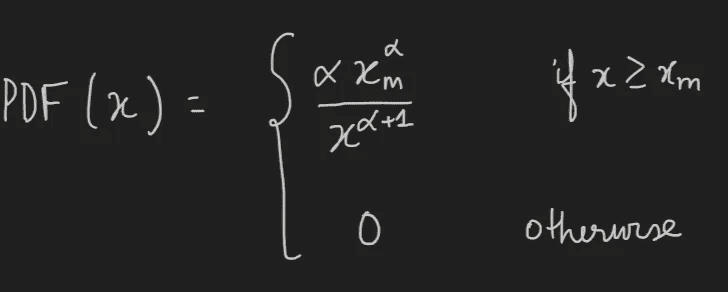 PDF(x) = { α x_m^α / x^(α+1) if x ≥ x_m
0 otherwise